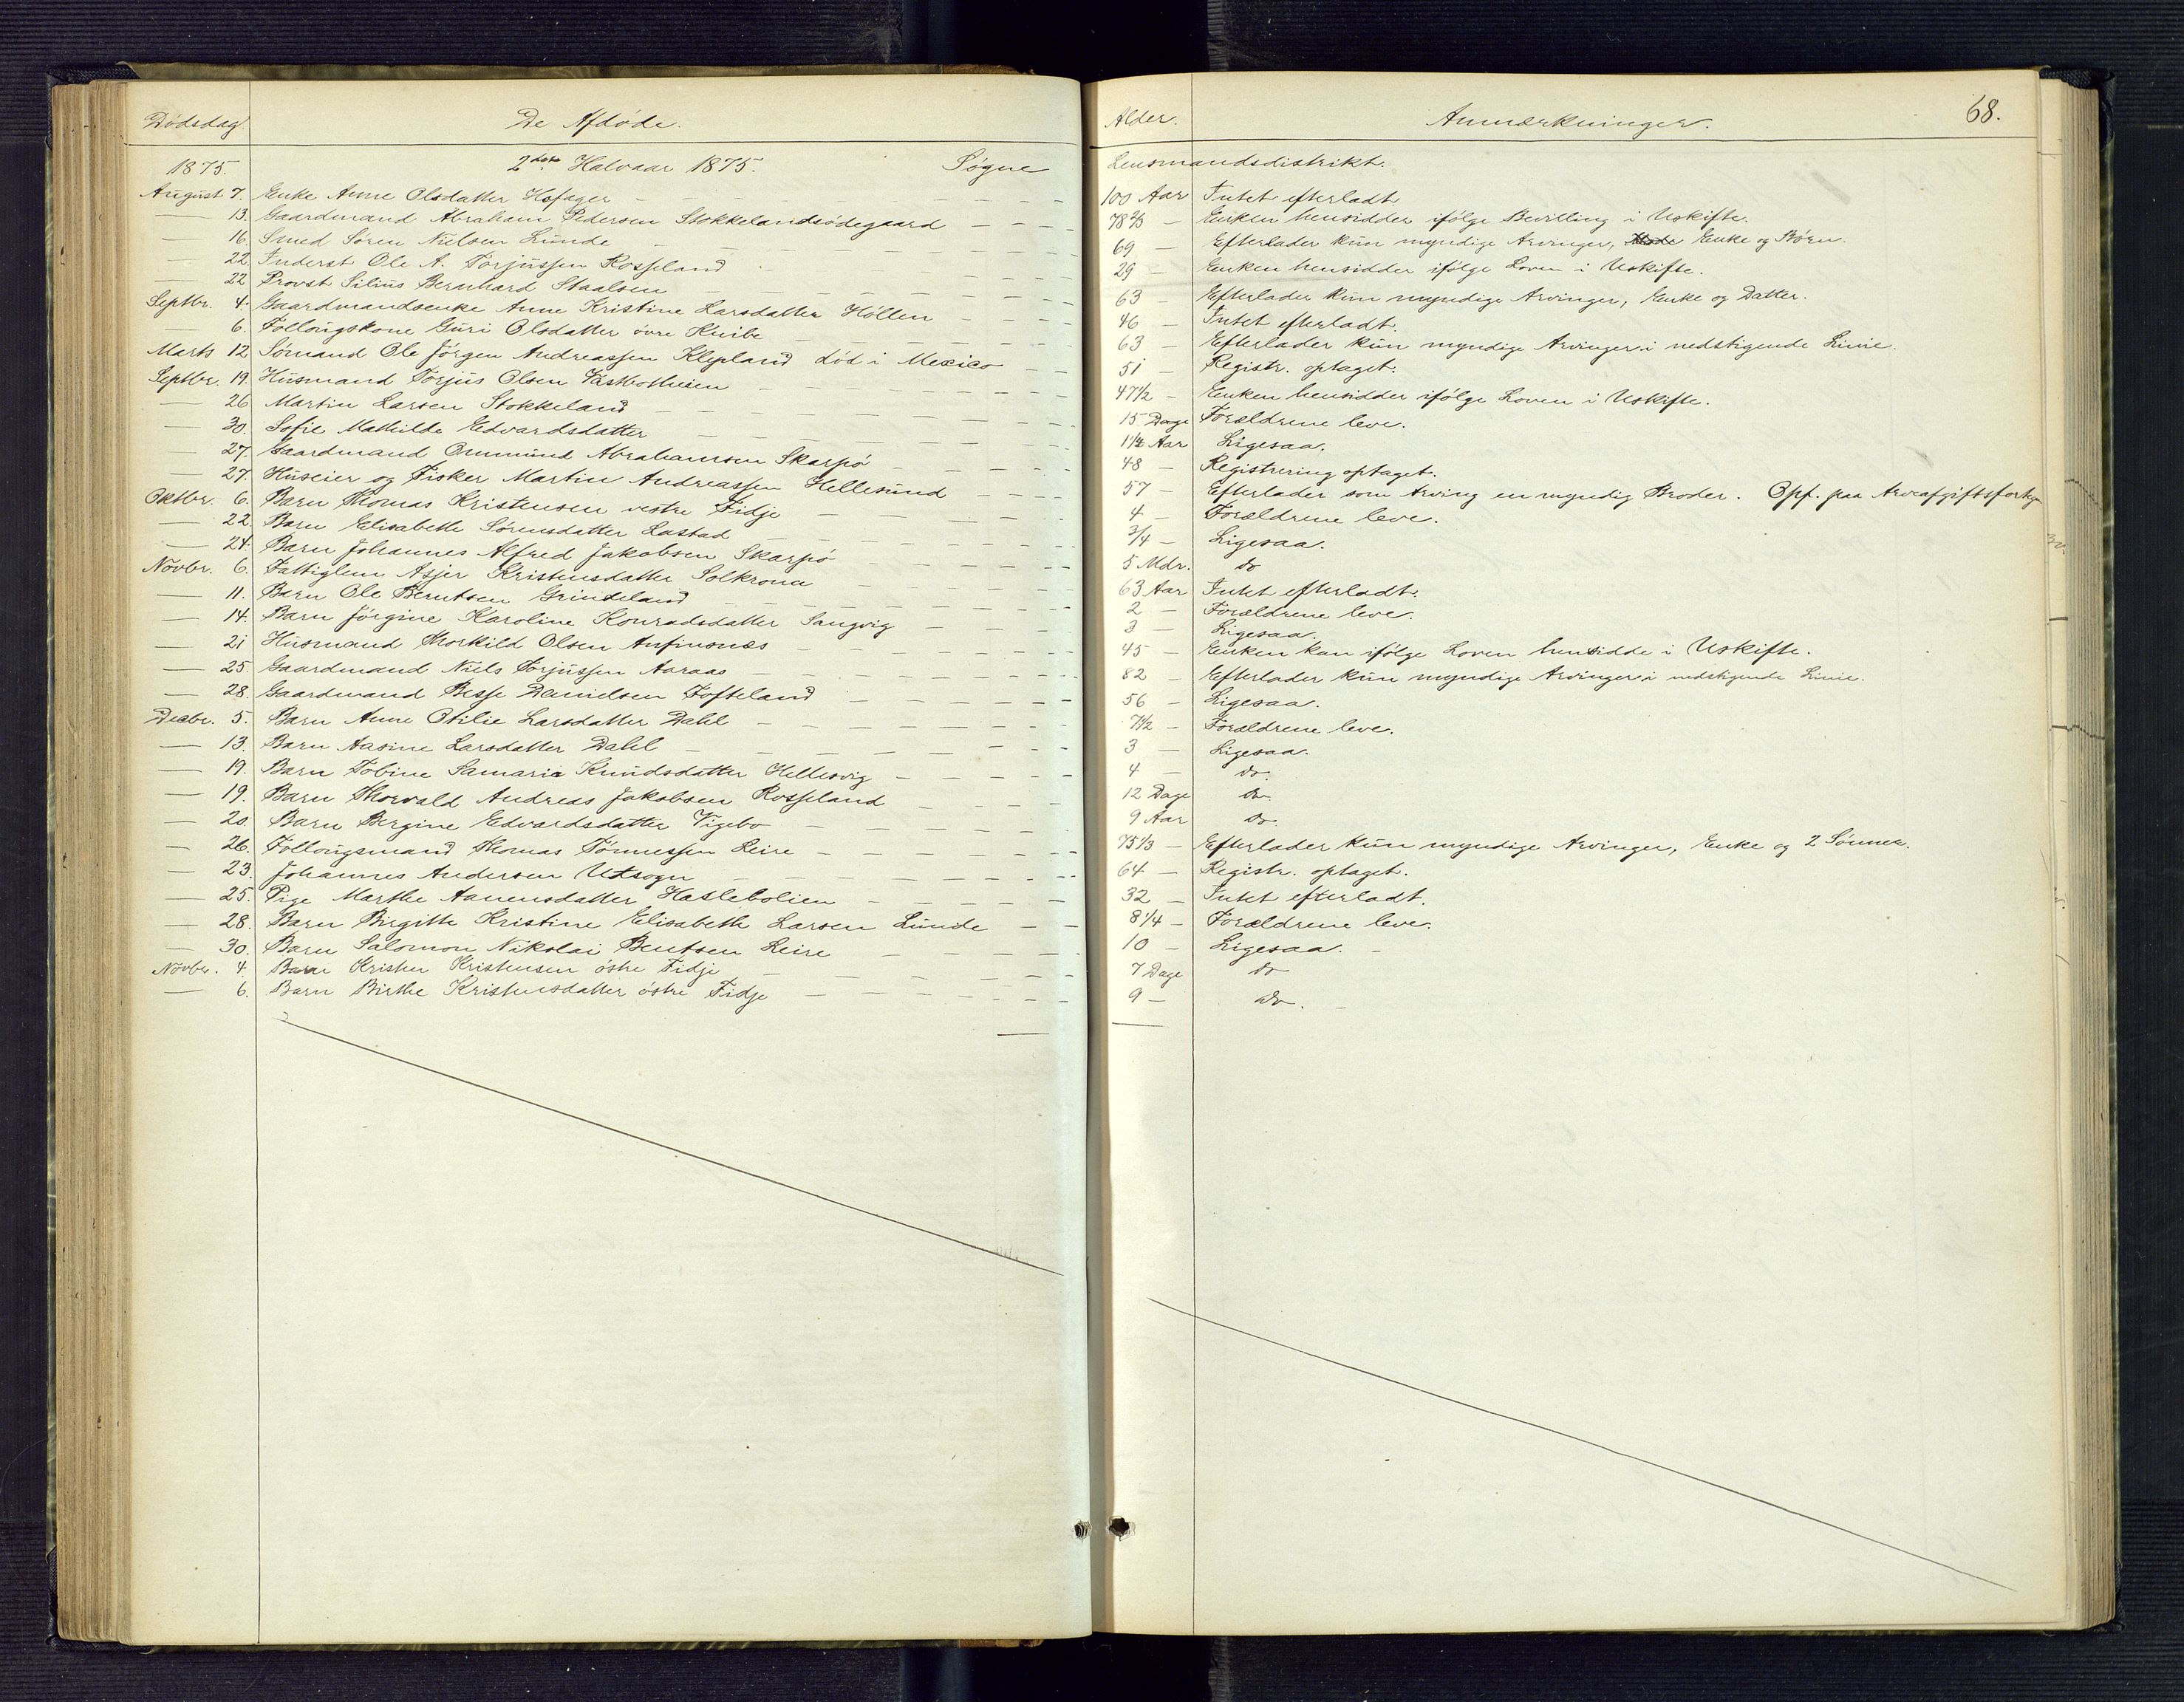 Dödsdag. De Afdöde. Alder. Anmærkninger. 68.
1875. 2det Halvaar 1875. Søgne Lensmandsdistrikt.
August 7. Enke Anne Olsdatter Hofager - 100 Aar Intet efterladt
— 13. Gaardmand Abraham Pedersen Stokkelandsödegaard - 78 2/3 — Enken hensidder ifölge Bevilling i Uskifte.
— 16. Smed Sören Nielsen Lunde - 69 — Efterlader kun myndige Arvinger, Enke og Börn.
— 22. Inderst Ole A. Torjussen Rosseland - 29 — Enken hensidder ifölge Loven i Uskifte.
— 22 Provst Silius Bernhard Staalsen - 63 — Efterlader kun myndige Arvinger, Enke og Datter.
Septbr. 4. Gaardmandsenke Anne Kristine Larsdatter Höllen - 46 — Intet efterladt.
— 6. Follougskone Guri Olsdatter övre Knibe - 63 — Efterlader kun myndige Arvinger i nedstigende Linie.
Marts 12 Sömand Ole Jörgen Andreassen Klepland död i Mexico - 51 — Registr. optaget.
Septbr. 19. Husmand Torjus Olsen Vaskotheien - 47 1/2 — Enken hensidder ifölge Loven i Uskifte.
— 26 Martin Larsen Stokkeland - 15 Dage Forældrene leve.
— 30. Sofie Mathilde Edvardsdatter - 1 1/2 Aar Ligesaa.
— 27. Gaardmand Ommund Abrahamsen Skarpö - 48 — Registrering optaget.
— 27. Huseier og Fisker Martin Andreassen Hellesund - 57 — Efterlader som Arving en myndig Broder. Opf. paa Arveafgiftsfortgn
Oktbr. 6. Barn Thomas Kristensen vestre Fidje - 4 — Forældrene leve.
— 22. Barn Elisabeth Sörensdatter Lastad - 3/4 — Ligesaa.
— 24. Barn Johannes Alfred Jakobsen Skarpö - 5 Mdr. do
Novbr. 6. Fattiglem Asjer Kristensdatter Solkrona - 63 Aar Intet efterladt.
— 11. Barn Ole Berntsen Grindeland - 2 — Forældrene leve.
— 14. Barn Jörgine Karoline Konradsdatter Sangvig - 3 — Ligesaa.
— 21 Husmand Thorkild Olsen Anfinsnæs - 45 — Enken kan ifölge Loven hensidde i Uskifte.
— 25. Gaardmand Niels Torjussen Aaraas - 82 — Efterlader kun myndige Arvinger i nedstigende Linie.
— 28. Gaardmand Besse Danielsen Tofteland - 56 — Ligesaa.
Decbr. 5. Barn Anne Otilie Larsdatter Dahl - 7 1/2 — Forældrene leve.
— 13. Barn Aasine Larsdatter Dahl - 3 — Ligesaa.
— 19. Barn Tobine Samaria Knudsdatter Hellesvig - 4 — do.
— 19. Barn Thorvald Andreas Jakobsen Rosseland - 12 Dage do.
— 20. Barn Bergine Edvardsdatter Vigebo - 9 Aar do
— 26. Follougsmand Thomas Tönnessen Leire - 75 1/3 — Efterlader kun myndige Arvinger, Enke og 2 Sönner.
— 23. Johannes Andersen Utsogn - 64 — Registr. optaget.
— 25. Pige Marthe Aanensdatter Haslebolien - 32 — Intet efterladt.
— 28. Barn Birgitte Kristine Elisabeth Larsen Lunde - 8 1/4 — Forældrene leve.
— 30. Barn Salomon Nikolai Bentsen Leire - 10 — Ligesaa.
Novbr. 4. Barn Kristen Kristensen östre Fidje - 7 Dage do
— 6. Barn Birthe Kristensdatter östre Fidje - 9 — do.